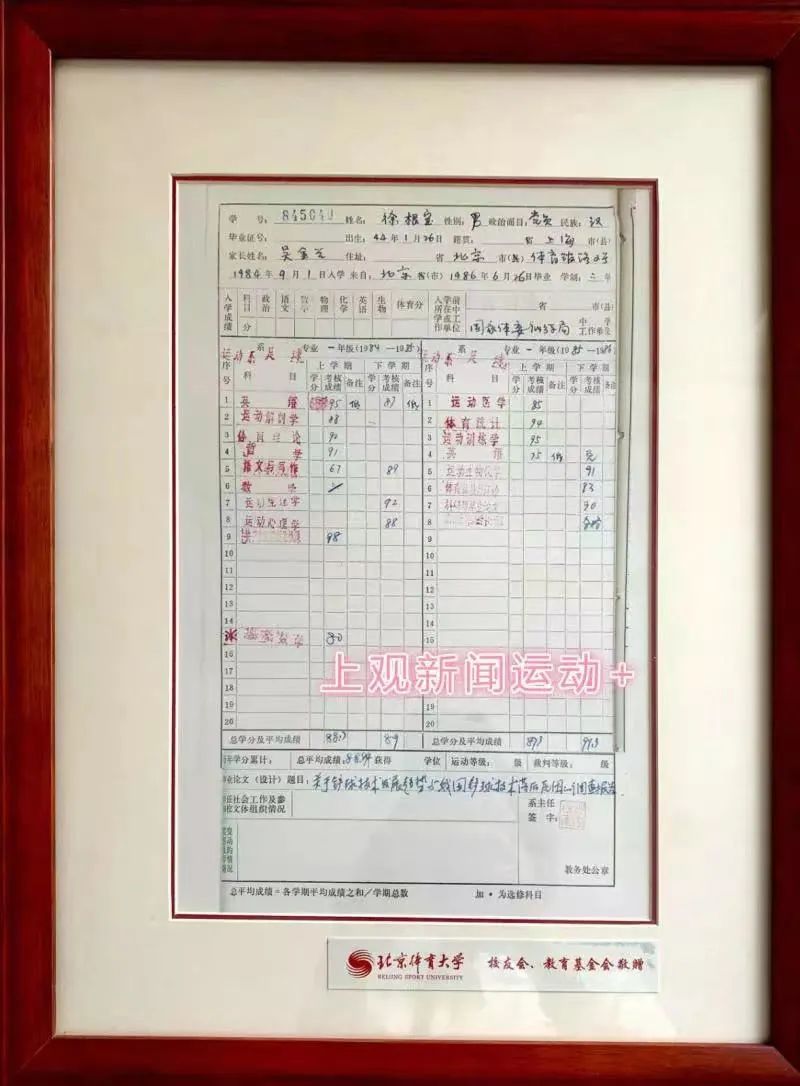 学 号: 姓名: 徐根宝 性别: 男 政治面目: 党员 民族: 汉
毕业证号: 出生: 44年1月16日 籍贯: 省 上海 市(县)
家长姓名: 吴金兰 住址: 省 北京 市(县) 体育馆路2号
1984年9月1日入学 来自: 北京 省(市) 1986年6月26日毕业 学制: 二 年
入学成绩 科目 政治 语文 数学 物理 化学 英语 生物 体育分 入学前所在中学或工作单位 省 市(县)
分 国家体委训练局 中学 工作单位
运动系足球 系 专业 一年级(1984—1985) 运动系足球 系 专业 一年级(1985—1986)
序号 科 目 上学期 下学期 序号 科 目 上学期 下学期
学分 考核成绩 备注 学分 考核成绩 备注 学分 考核成绩 备注 学分 考核成绩 备注
1 英语 95 87 1 运动医学 85
2 运动解剖学 88 2 体育统计 94
3 体育理论 90 3 运动训练学 95
4 哲学 91 4 英语 75
5 语文与写作 67 89 5 运动生物化学 91
6 数学 6 83
7 运动生理学 92 7 90
8 运动心理学 88 8 合格
9 98 9
10 10
11 11
12 12
13 13
14 14
80 15
16
17
18
19 19
20 20
上观新闻运动+
总学分及平均成绩 88.3 89 总学分及平均成绩 91.3
年学分累计: 总平均成绩: 获得 学位 运动等级: 级 裁判等级: 级
业论文(设计)题目: 关于铲球技术发展趋势与我国铲球技术落后原因的调查报告
任社会工作及参 系主任
校文体组织情况 签 字:
教务处公章
总平均成绩=各学期平均成绩之和/学期总数 加 * 为选修科目
北京体育大学 校友会、教育基金会敬赠
BEIJING SPORT UNIVERSITY